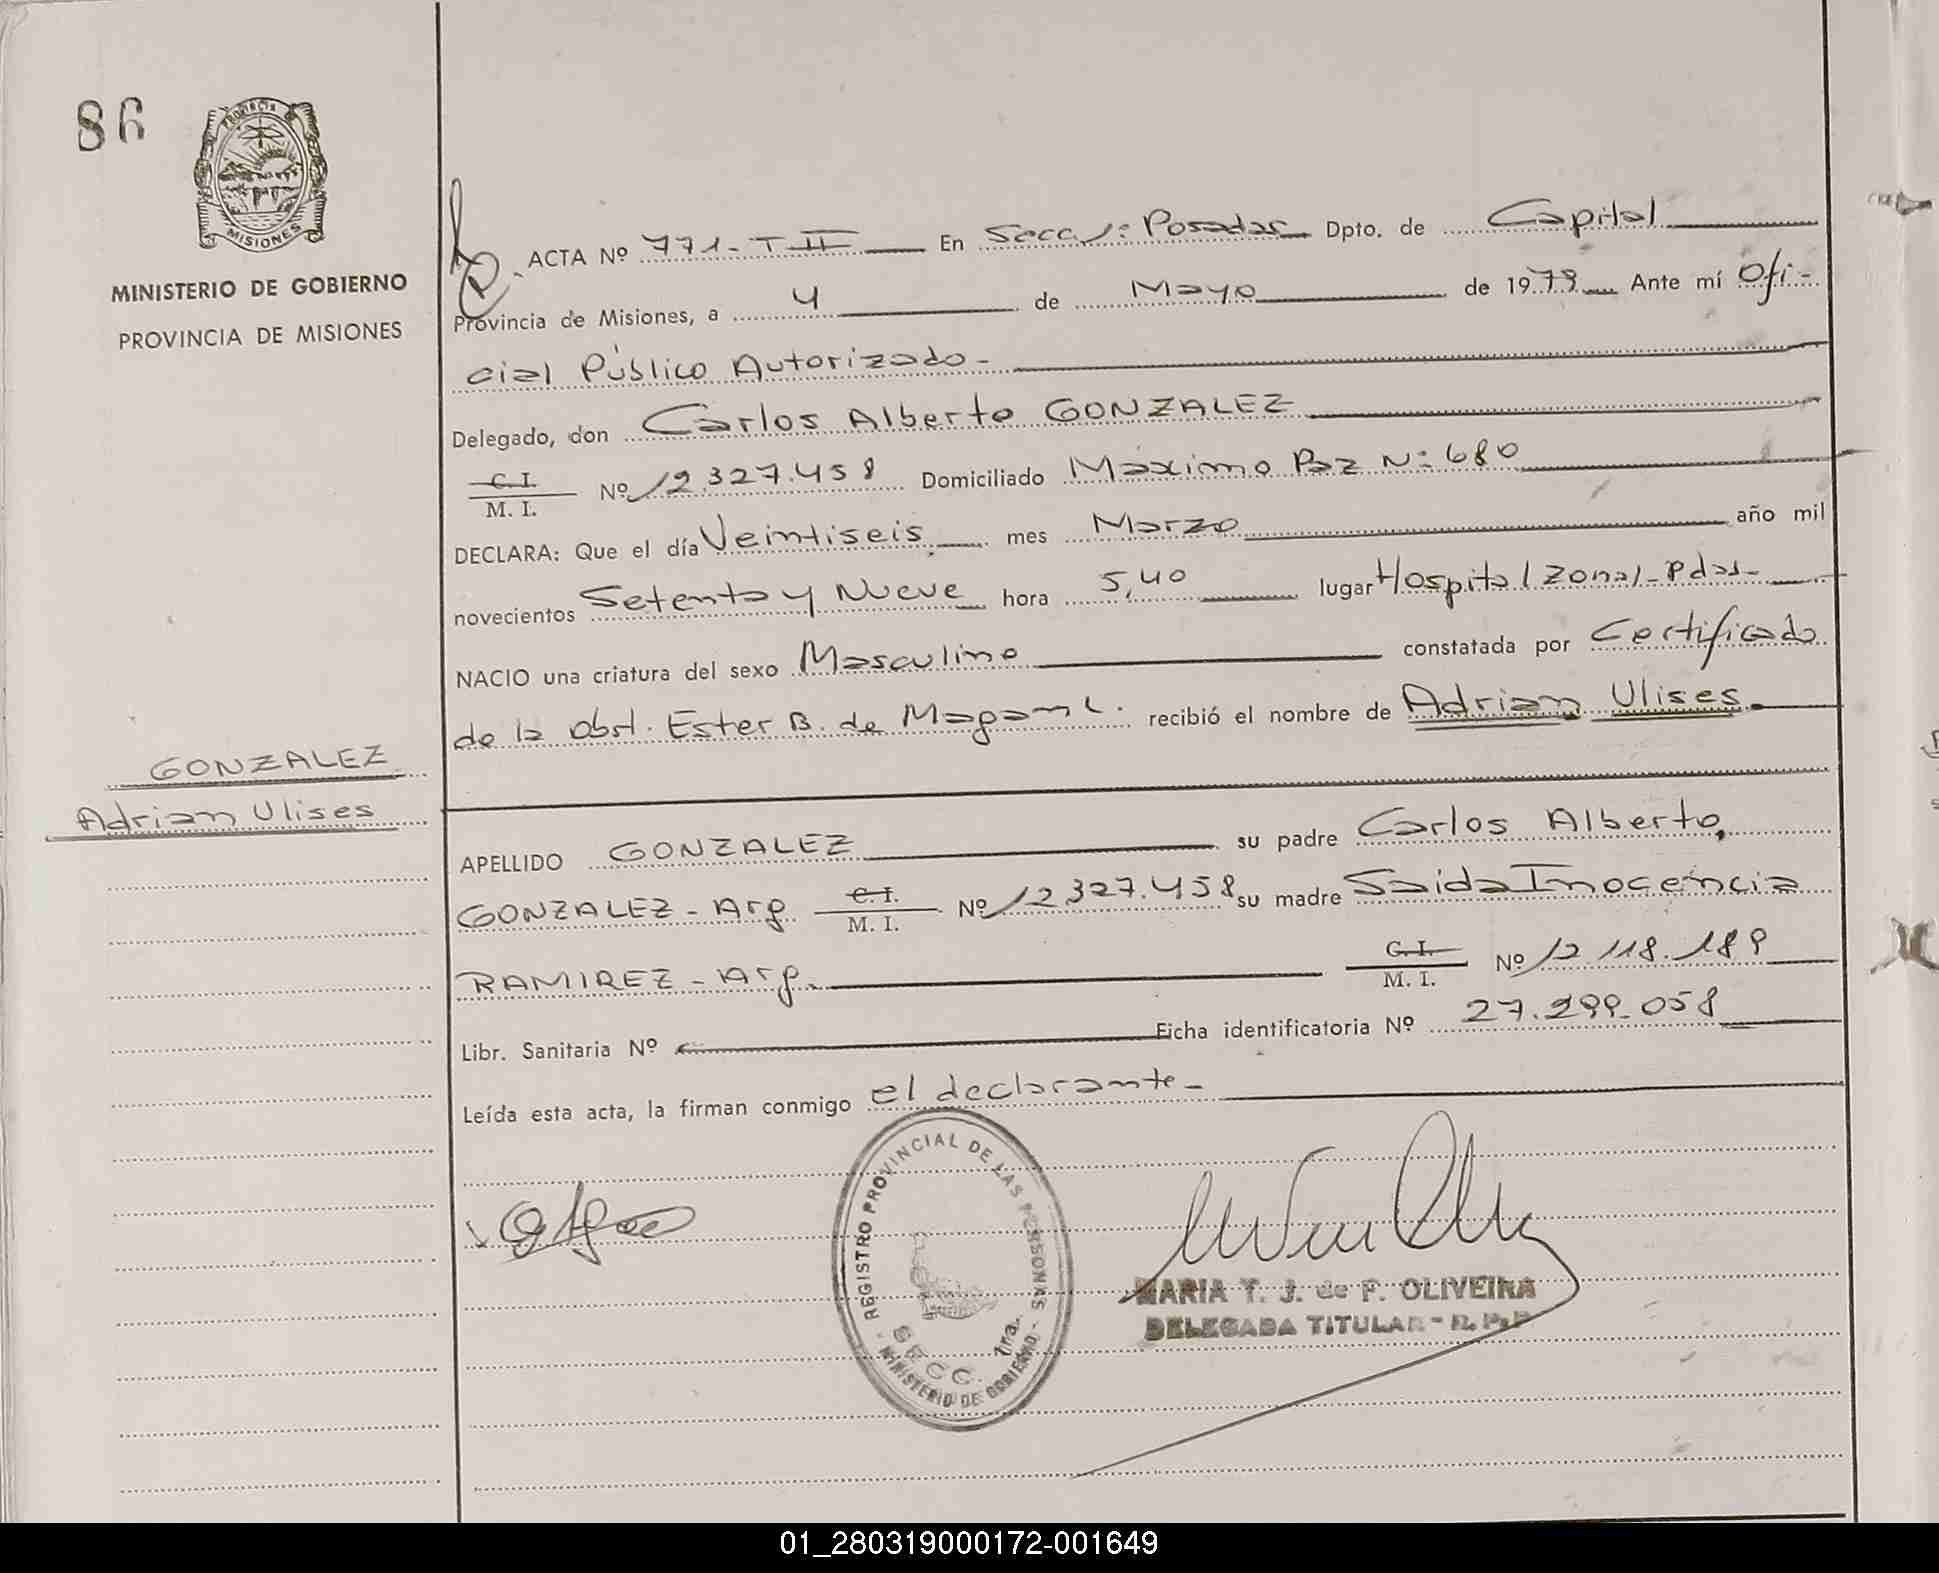 86
PROVINCIA
MISIONES
MINISTERIO DE GOBIERNO
PROVINCIA DE MISIONES
ACTA Nº 771-T II En Secc 1: Posadas Dpto. de Capital
Provincia de Misiones, a 4 de Mayo de 1979 Ante mí Ofi-
cial Público Autorizado-
Delegado, don Carlos Alberto GONZALEZ
C. I.
M. I. Nº 12.327.458 Domiciliado Máximo Paz Nº 680
DECLARA: Que el día Veintiseis mes Marzo año mil
novecientos Setenta y Nueve hora 5,40 lugar Hospital Zonal-Pdas-
NACIO una criatura del sexo Masculino constatada por Certificado
de la Obst. Ester B. de recibió el nombre de Adrian Ulises
GONZALEZ
Adrian Ulises
APELLIDO GONZALEZ su padre Carlos Alberto,
GONZALEZ-Arg C. I.
M. I. Nº 12.327.458 su madre Saida Inocencia
RAMIREZ-Arg. C. I.
M. I. Nº 12.118.189
Libr. Sanitaria Nº Ficha identificatoria Nº 27.299.058
Leída esta acta, la firman conmigo el declarante-
REGISTRO PROVINCIAL DE LAS PERSONAS
SECC. 1ra.
MINISTERIO DE GOBIERNO
MARIA T. J. de F. OLIVEIRA
DELEGADA TITULAR - R. P. P.
01_280319000172-001649